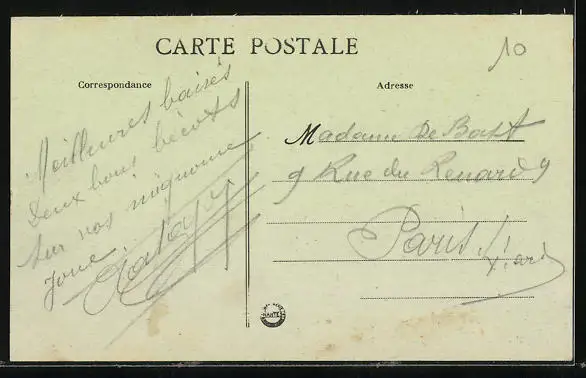 CARTE POSTALE
10
Correspondance
Meilleures baisés
Deux bons bécots
Sur vos mignonne
joue.
Adresse
Madame De Bast
9 Rue du Renard 9
Paris
NANTES